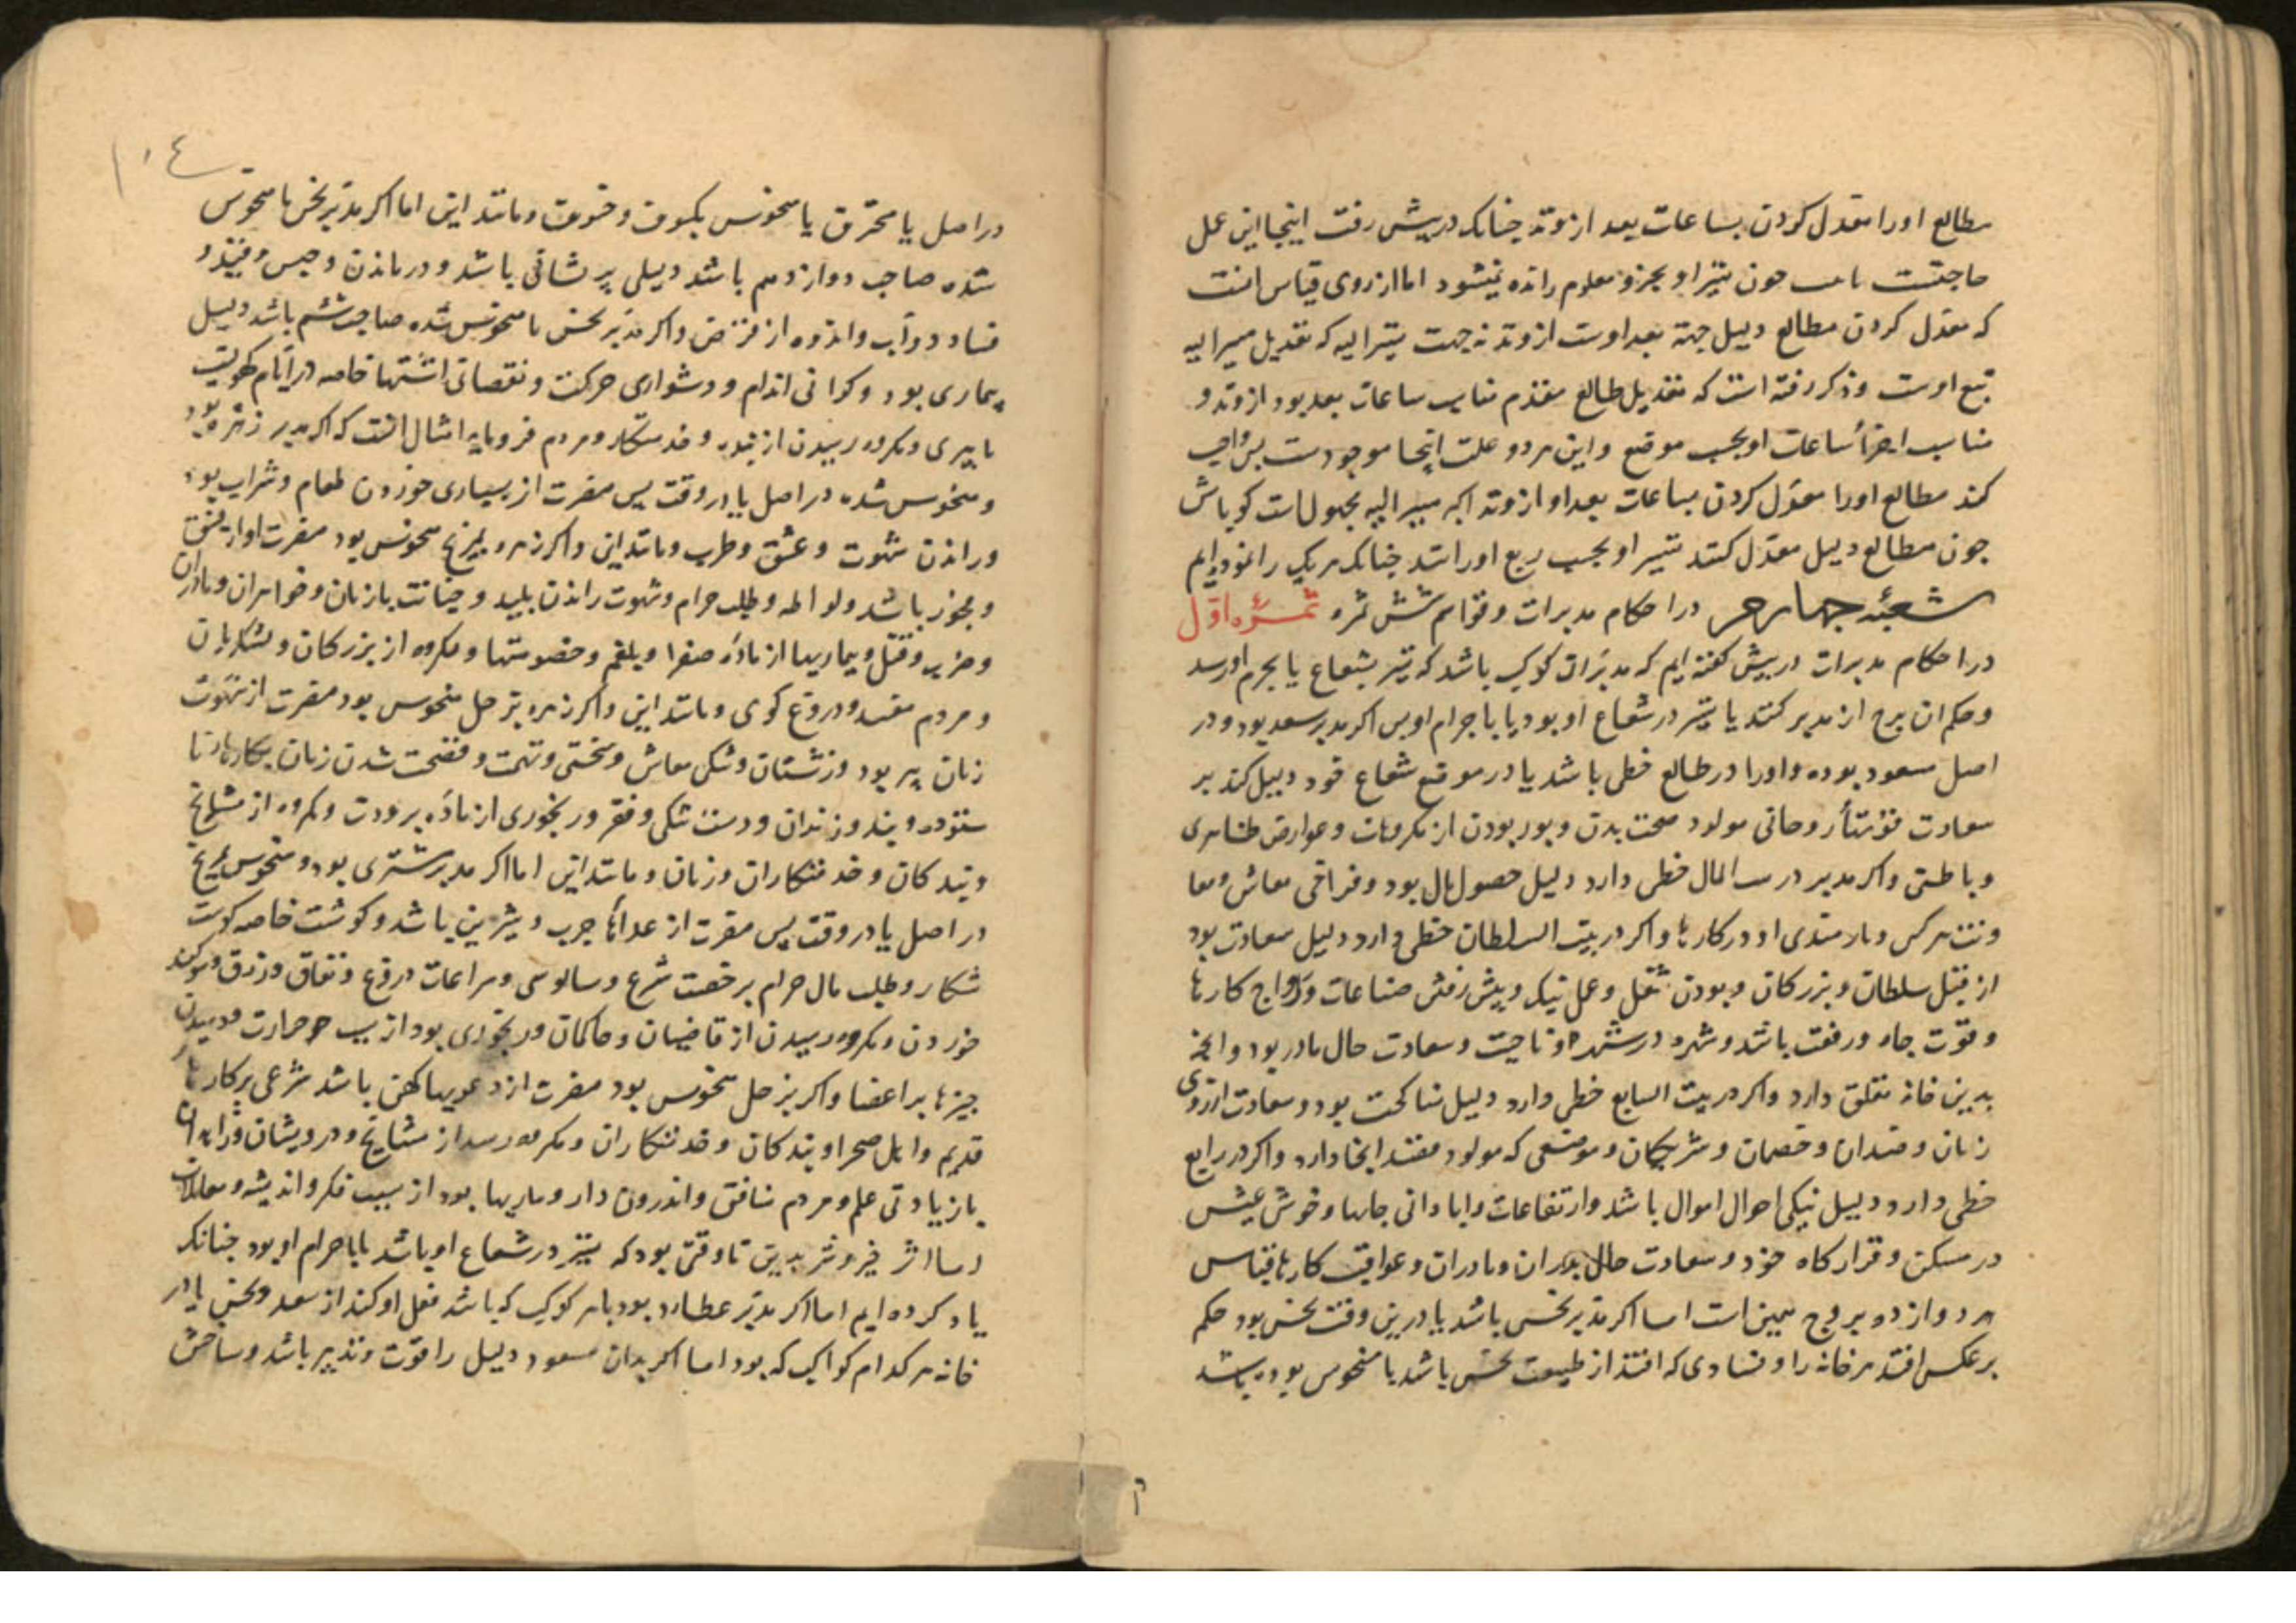 مطالع اورا معدل کردن بساعات بعد از وتد چنانک در پیش رفت اینجا این عمل
حاجتست چون تسیر او بجزو معلوم رانده نمیشود اما از روی قیاس آنست
که معدل کردن مطالع دلیل جهة بعد اوست از وتد نه جهت مسیر الیه که تعدیل مسیر الیه
تبع اوست و ذکر رفته است که تعدیل طالع مقدم مناسب ساعات بعد بود از وتد و
مناسب اجزأ ساعات او بحسب موضع و این هر دو علت اینجا موجودست پس واجب
کند مطالع اورا معدل کردن بساعات بعد او از وتد اگر مسیر الیه مجهولست کو باش
چون مطالع دلیل معدل کنند تسیر او بحسب ربع او راتند چنانک هر یک را نموده‌ایم
شعبهٔ چهارم در احکام مدبرات و قواسم شش ثمره ثمرهٔ اول
در احکام مدبرات در پیش گفته ایم که مدبرات کوکب باشد که تسیر بشعاع یا بجرم او رسد
و حکم ان برج از مدبر کنند یا تسیر در شعاع او بود یا با جرام او پس اکر مدبر سعد بود و در
اصل مسعود بوده و اورا در طالع خطی باشد یا در موقع شعاع خود دلیل کند بر
سعادت روحانی مولود صحت بدن و دور بودن از مکروهات و عوارض ظاهری
و باطنی و اکر مدبر در بیت المال خطی دارد دلیل حصول مال بود و فراخی معاش و
هر کس و یارمندی او در کارها و اکر در بیت السلطان خطی دارد دلیل سعادت بود
از قبل سلطان و بزرکان و بودن شغل و عمل نیک و پیش رفتن صناعات و رواج کارها
و قوت جاه و رفعت باشد و شهره در شهر و ناحیت و سعادت حال مادر بود و آنچه
بدین خانه تعلق دارد و اکر در بیت السابع خطی دارد دلیل مناکحت بود و سعادت از روی
زنان و ضدان و خصمان و شریکان و موضعی که مولود مقصد آنجا دارد و اکر در رابع
خطی دارد دلیل نیکی احوال اموال باشد و ارتفاعات و ابادانی جایها و خوش عیش
در مسکن و قرارکاه خود و سعادت حال پدران و مادران و عواقب کارها قیاس
هر دوازده بروج همین است اما اکر مدبر نحس باشد یا درین وقت نحس بود حکم
بر عکس افتد هر خانه را و فسادی که افتد از طبیعت نحس باشد یا منحوس بوده باشد
۱۰٤
در اصل یا محترق یا منحوس بکسوف و خسوف و مانند این اما اکر مدبر نحس یا منحوس
شده صاحب دوازدهم باشد دلیلی پریشانی باشد و درماندن و حبس و قید و
فساد دوآب و اندوه از قرض و اکر مدبر نحس یا منحوس شده صاحب ششم باشد دلیل
بیماری بود و کرانی اندام و دشواری حرکت و نقصانی اشتها خاصه در ایام کهولیت
یا پیری و مکروه رسیدن از بنده و خدمتکار و مردم فرومایه امثال آنست که اکر مدبر زهره بود
و منحوس شده در اصل یا در وقت پس مضرت از بسیاری خوردن طعام و شراب بود
و راندن شهوت و عشق و طرب و مانند این و اکر زهره بمریخ منحوس بود مضرت او از فسق
و فجور باشد و لواطه و طلب حرام و شهوت راندن پلید و خیانت با زنان و خواهران و مادران
و ضرب و قتل و بیماریها از مادّه صفرا و بلغم و خصومتها و مکروه از بزرکان و لشکریان
و مردم مفسد و دروغ کوی و مانند این و اکر زهره بزحل منحوس بود مضرت از شهوت
زنان پیر بود و زشتان و تنکی معاش و سختی و تهمت و فضحت شدن زنان بکارهاء نا
ستوده و بند و زندان و دست تنکی و فقر و رنجوری از مادّه برودت و مکروه از مشایخ
و بندکان و خدمتکاران و زنان و مانند این اما اکر مدبر مشتری بود و منحوس بمریخ
در اصل یا در وقت پس مضرت از غذاها چرب و شیرین باشد و کوشت خاصه کوشت
شکار و طلب مال حرام برخصت شرع و سالوسی و مراعات دروغ و نفاق و زرق و سوکند
خوردن و مکروه رسیدن از قاضیان و حاکمان و رنجوری بود از سبب حرارت و دمیدن
چیزها بر اعضا و اکر بزحل منحوس بود مضرت از دعویها کهن باشد شرعی بر کارها
قدیم و اهل صحرا و بندکان و خدمتکاران و مکروه رسد از مشایخ و درویشان و زاهدان
با زیادتی علم و مردم منافق و اندرون دار و بیماریها بود از سبب فکر و اندیشه و معاملات
اما اثر خیر و شر بدین تا وقتی بود که تسیر در شعاع او باشد یا با جرام او بود چنانک
یاد کرده ایم اما اکر مدبر عطارد بود با هر کوکب که باشد فعل او کند از سعد و نحس یا در
خانه هر کدام کواکب که بود اما اکر بدان مسعود دلیل را قوت و تدبیر باشد و ساختن